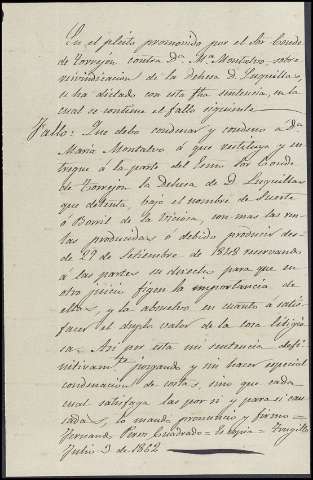 En el pleito promovido por el Sor Conde
de Torrejon contra Dª Mª Montalvo, sobre
reivindicacion de la dehesa de Luquillas,
se ha dictado con esta fha sentencia, en la
cual se contiene el fallo siguiente
Fallo: Que debo condenar y condeno a Dª
Maria Montalvo á que restituya y en-
tregue á la parte del Conde
de Torrejon la dehesa de D. Luquillas
que detenta, bajo el nombre de Suerte
ó Borril de la Viciosa, con mas las ren-
tas producidas ó debido producir des-
de 29 de Setiembre de 1848 reservando
á las partes su derecho para que en
otro juicio fijen la importancia de
ellas, y la absuelvo en cuanto á satis-
facer el duplo valor de la cosa litigio-
sa. Asi por esta mi sentencia defi-
nitivamte juzgando y sin hacer especial
condenacion de costas, sino que cada
cual satisfaga las por si y para si cau-
sadas, lo mando pronuncio y firmo =
Fernando Perez Cuadrado = Es copia = Trugillo
Julio 3 de 1862